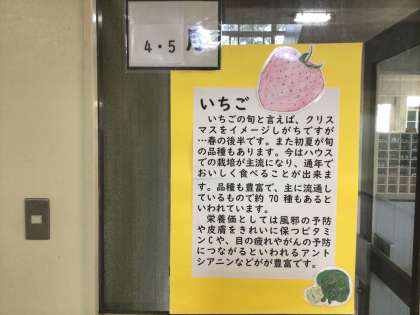 4・5月
いちご
いちごの旬と言えば、クリス
マスをイメージしがちですが
…春の後半です。また初夏が旬
の品種もあります。今はハウス
での栽培が主流になり、通年で
おいしく食べることが出来ま
す。品種も豊富で、主に流通し
ているもので約 70 種もあると
いわれています。
栄養価としては風邪の予防
や皮膚をきれいに保つビタミ
ンCや、目の疲れやがんの予防
につながるといわれるアント
シアニンなどがが豊富です。